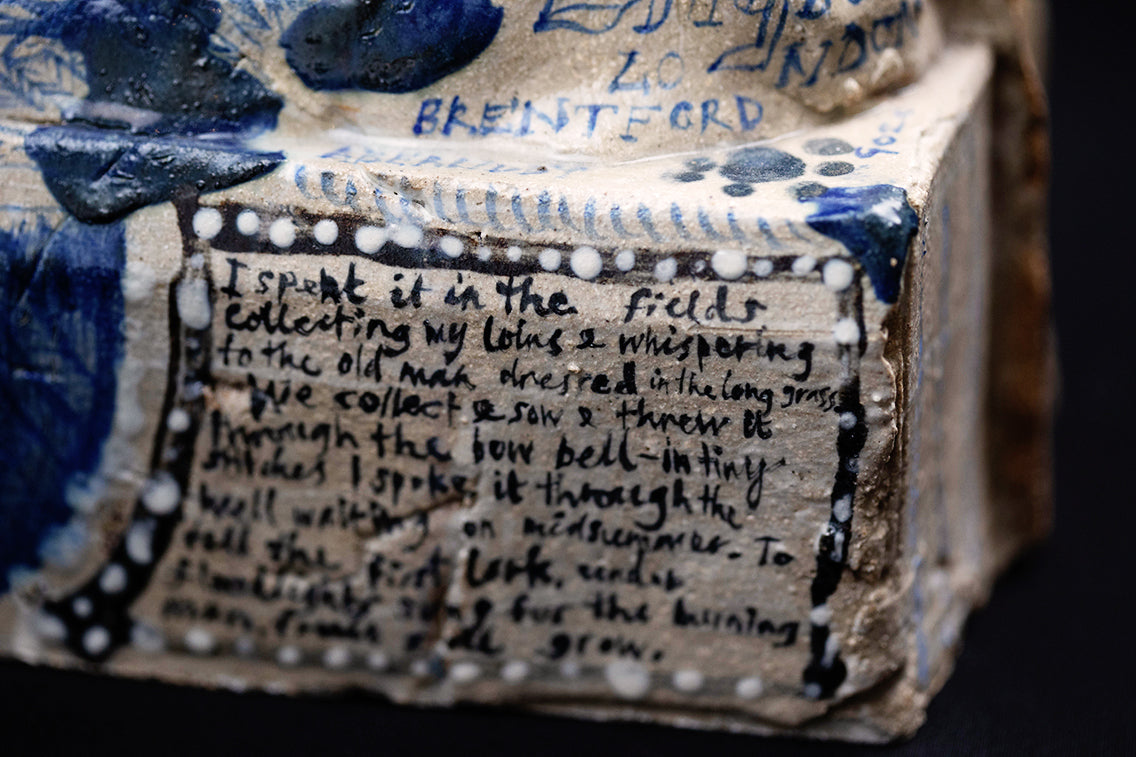 LONDON
BRENTFORD
I spent it in the fields
collecting my loins & whispering
to the old man dressed in the long grass
We collect & sow & threw it
through the bow bell-in tiny
stitches I spoke it through the
well waiting on midsummer. To
call the first lark, under
song for the burning
man. grow.